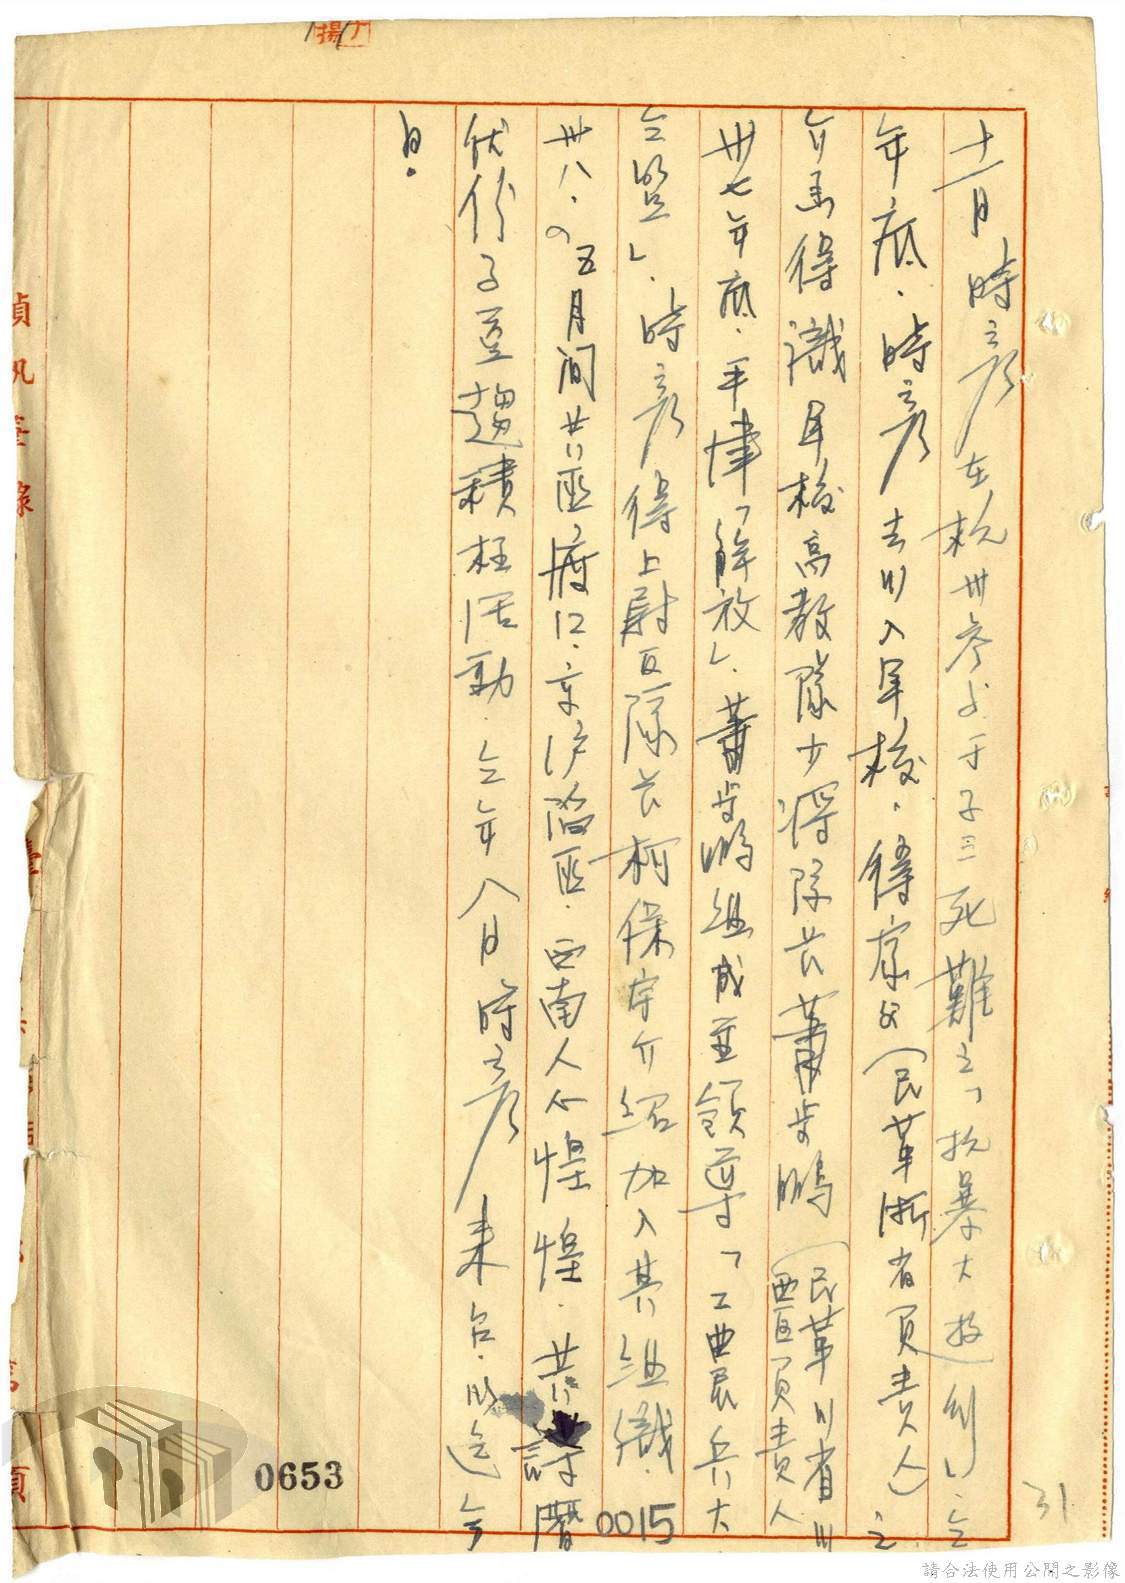 十一月時彥在杭卅參与于子三死難之「抗暴大遊行」仝
年底．時彥去川入軍校．得家父（民革浙省負責人）之
介函得識軍校高教隊少將隊长蕭步鵬（民革川省川西區負責人
卅七年底．平津「解放」．蕭步鵬組成並領導「工農兵大
仝盟」．時彥得上尉区隊长柯保字介紹加入其組織．
卅八．五月間共匪渡江．京沪陷匪．西南人心惶惶．共諜潛
伏份子益趨積極活動．仝年八月時彥来台．以迄今
日．
0653
0015
31
請合法使用公開之影像